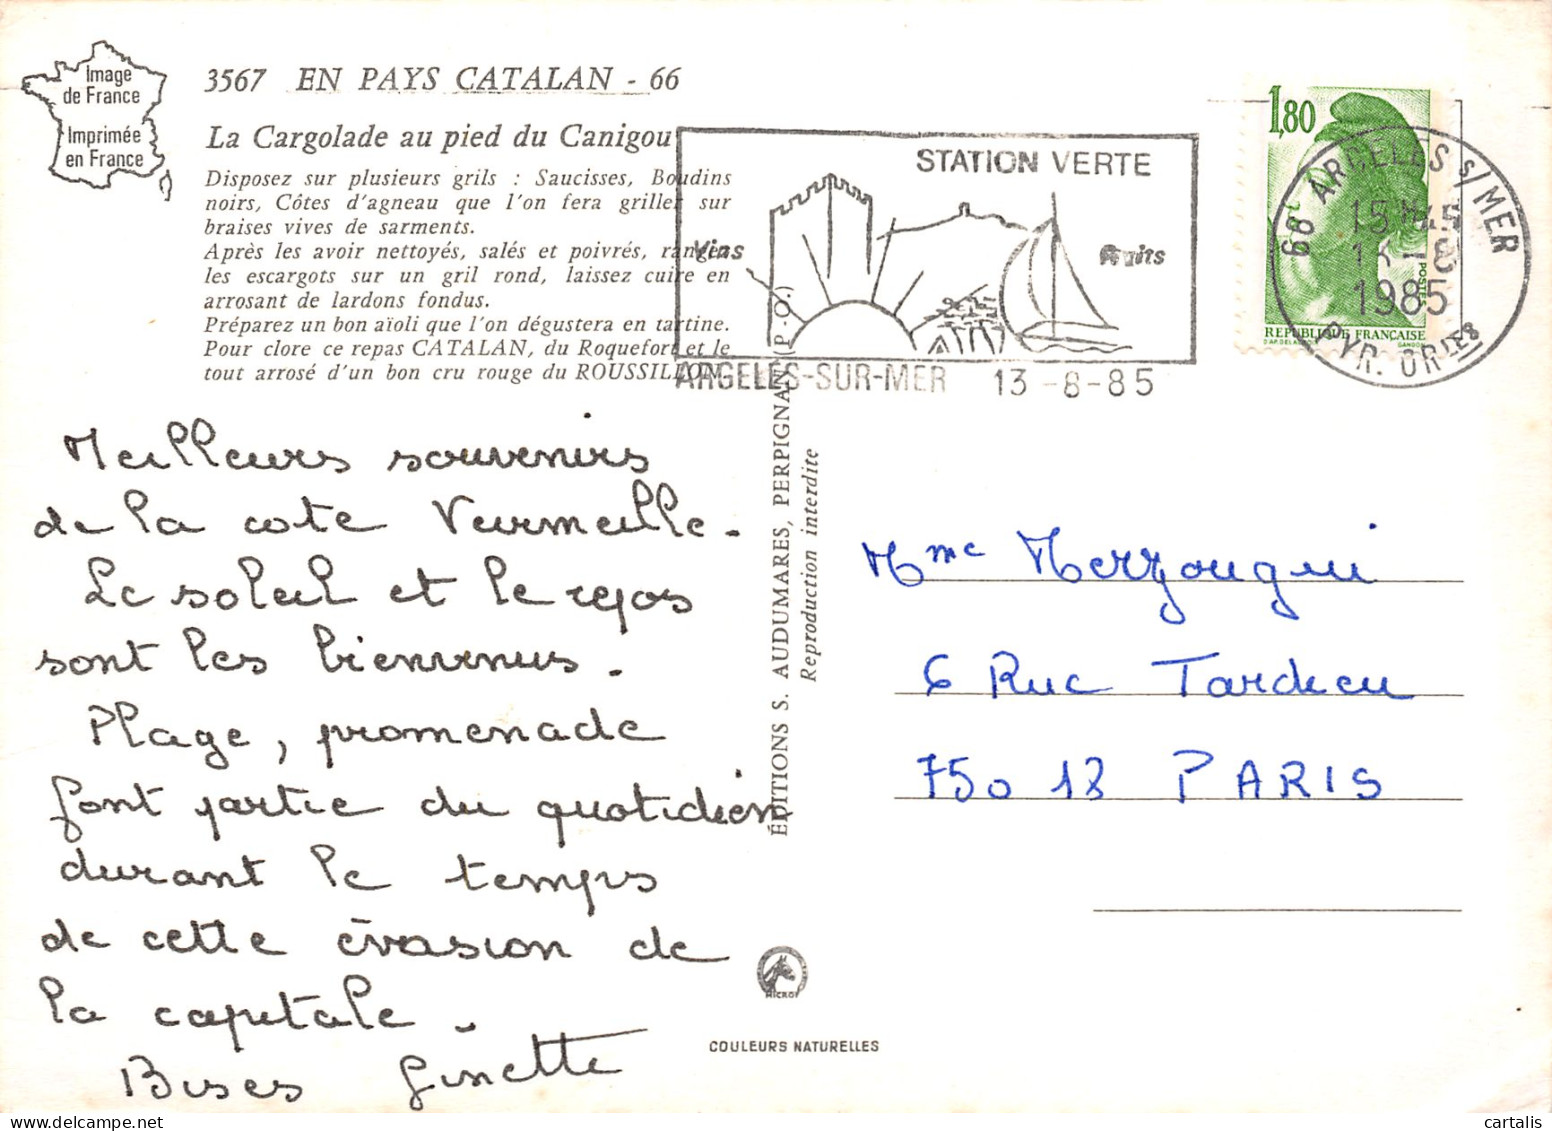 Image
de France
Imprimée
en France
3567 EN PAYS CATALAN - 66
La Cargolade au pied du Canigou
Disposez sur plusieurs grils : Saucisses, Boudins
noirs, Côtes d'agneau que l'on fera griller sur
braises vives de sarments.
Après les avoir nettoyés, salés et poivrés, rangez
les escargots sur un gril rond, laissez cuire en
arrosant de lardons fondus.
Préparez un bon aïoli que l'on dégustera en tartine.
Pour clore ce repas CATALAN, du Roquefort et le
tout arrosé d'un bon cru rouge du ROUSSILLON.
STATION VERTE
Vins
Fruits
ARGELES-SUR-MER 13-8-85
1,80
POSTES
REPUBLIQUE FRANÇAISE
GANDON
66 ARGELES S/MER
15H45
13-8
1985
PYR. ORLES
Meilleurs souvenirs
de la cote Vermeille.
Le soleil et le repos
sont les bienvenus.
Plage, promenade
font partie du quotidien
durant le temps
de cette évasion de
la capitale.
Bises Ginette
ÉDITIONS S. AUDUMARES, PERPIGNAN (P.-O.)
Reproduction interdite
Mme Merzougui
6 Rue Tardieu
75018 PARIS
MICRO
COULEURS NATURELLES
cartalis